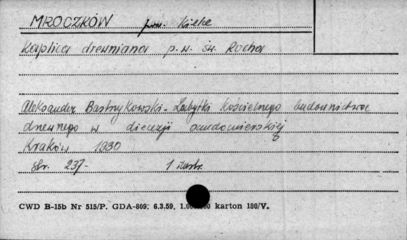 MROCZKÓW pow. Kielce
Kaplica drewniana p.w. św. Rocha
Aleksander Bastrzykowski - Zabytki Kościelnego budownictwa
drewnego w diecezji sandomierskiej
Kraków 1930
str. 237- 1 ilustr.
CWD B-15b Nr 515/P. GDA-809. 6.3.59, karton 180/V.